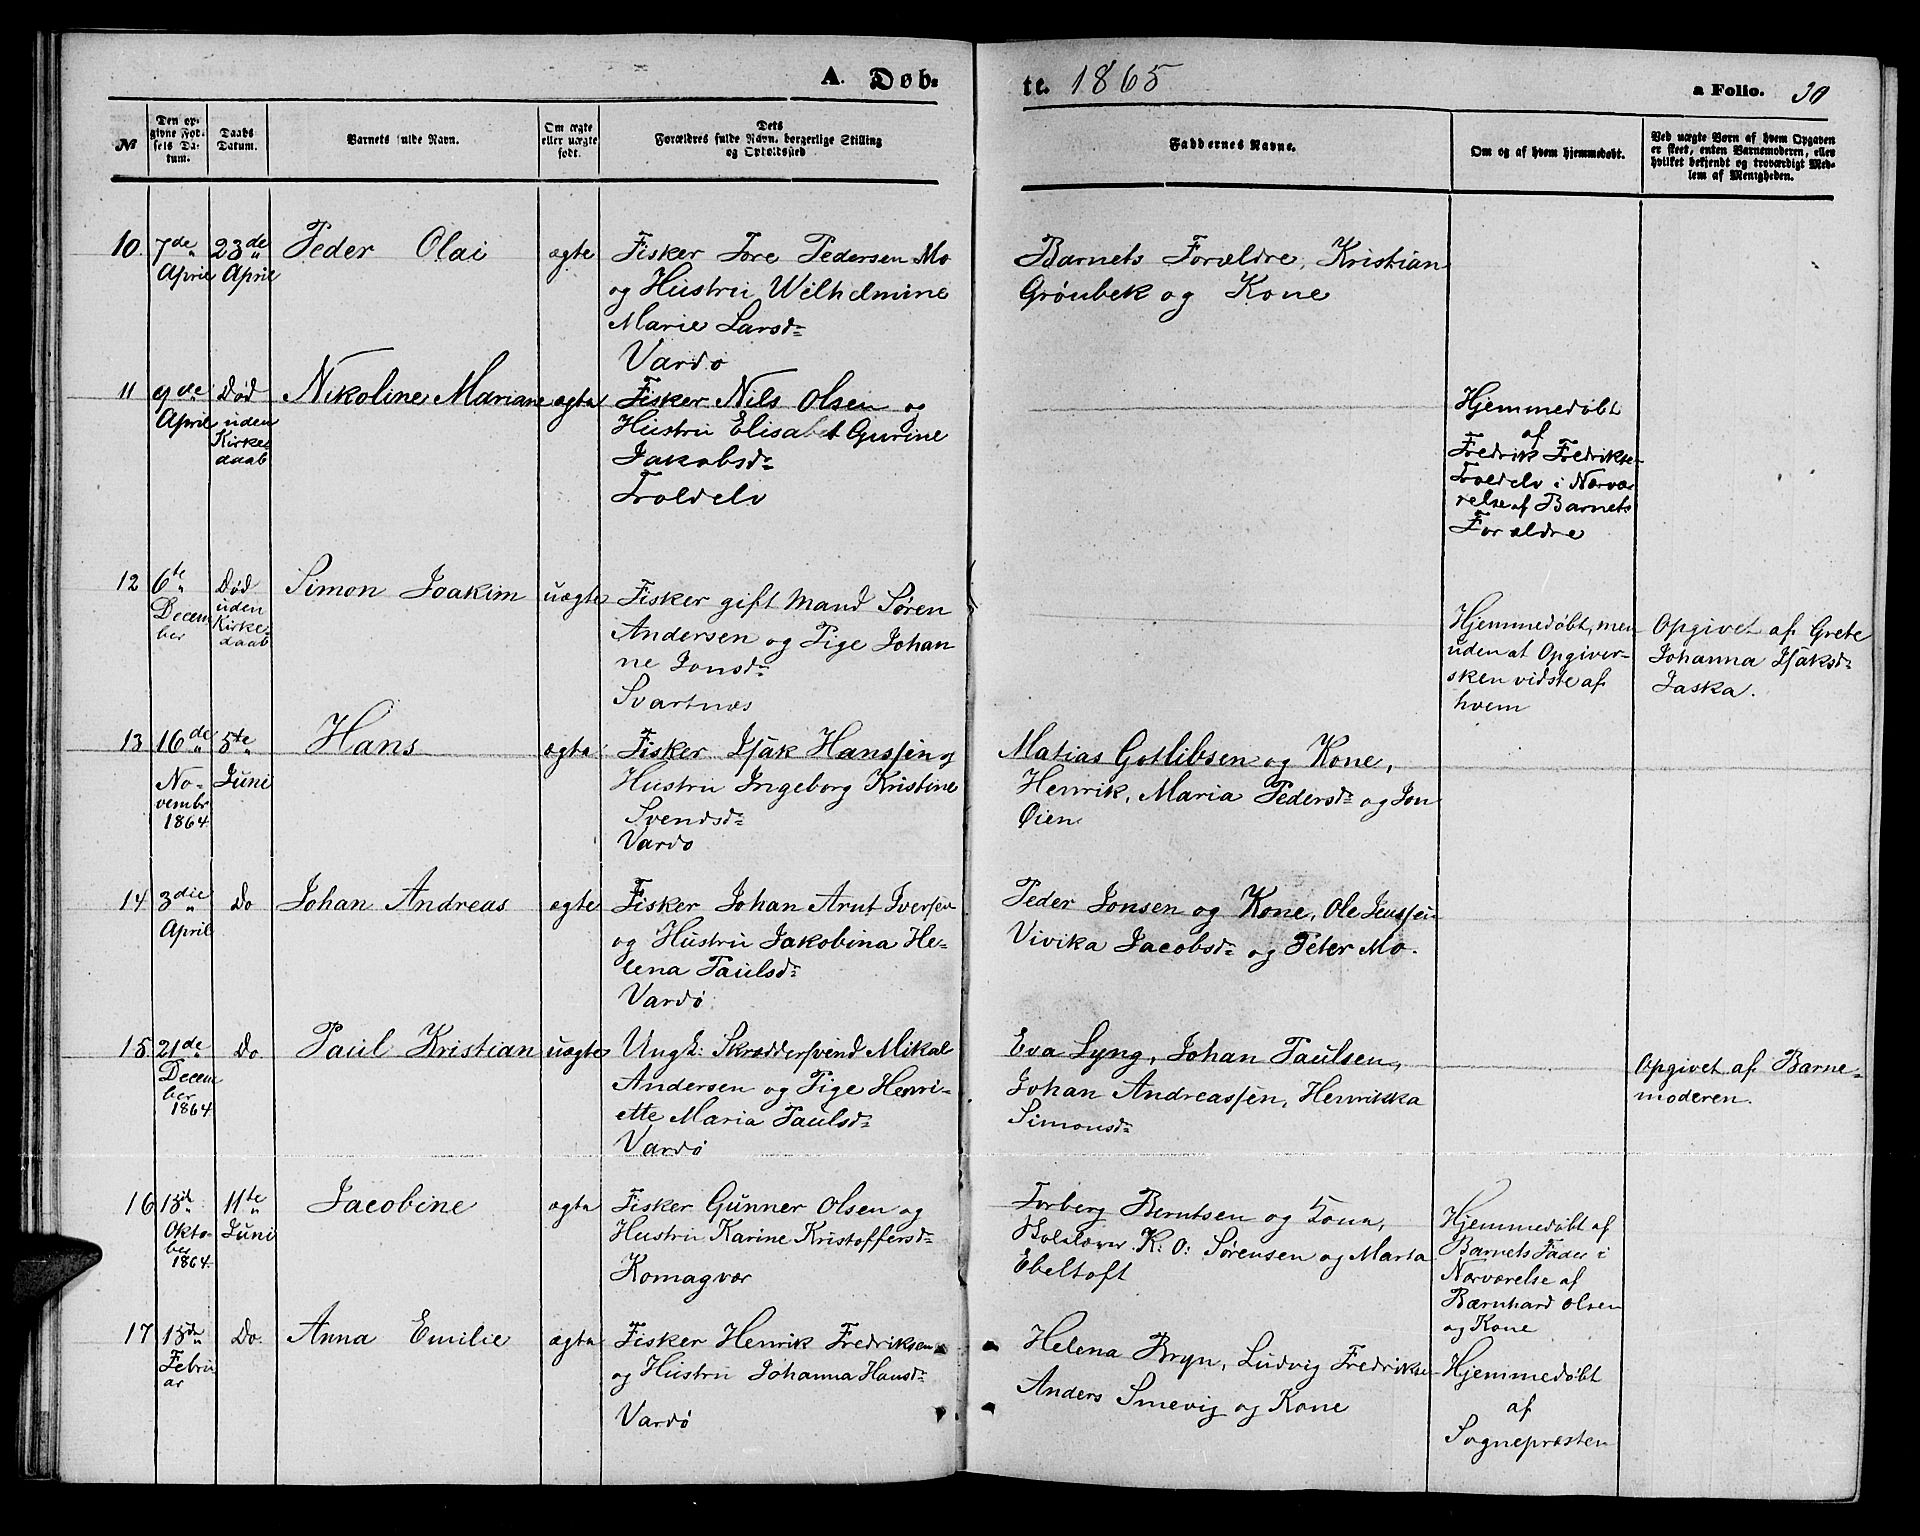 A. Døb-
te. 1865
a Folio. 30
№
Den op-
givne Fød-
sels Da-
tum.
Daabs
Datum.
Barnets fulde Navn.
Om ægte
eller uægte
født.
Dets
Forældres fulde Navn, borgerlige Stilling
og Opholdssted
Faddernes Navne.
Om og af hvem hjemmedøbt.
Ved uægte Børn af hvem Opgaven
er skeet, enten Barnemoderen, eller
hvilket bekjendt og troværdigt Med-
lem af Menigheden.
10.
7de
April
23de
April
Peder Olai
ægte
Fisker Tore Pedersen Mo
og Hustru Wilhelmine
Marie Larsd=
Vardo
Barnets Forældre, Kristian
Grönbek og Kone
11
9de
April
Død
uden
Kirke-
daab
Nikoline Mariane
ægte
Fisker Nils Olsen og
Hustru Elisabet Gurine
Jakobsd=
Troldelv
Hjemmedöbt
af
Fredrik Fredrikse-
Troldelv i Nærvæ
relse af Barnets
Forældre
12
6te
Decem
ber
Død
uden
Kirke-
daab
Simon Joakim
uægte
Fisker gift Mand Søren
Andersen og Pige Johan
ne Jonsd=
Svartnæs
Hjemmedöbt, men
uden at Opgiver-
sken vidste af
hvem
Opgivet af Grete
Johanna Isaksd=
Jaska.
13
16de
No-
vembr
1864
5te
Juni
Hans
ægte
Fisker Isak Hanssen og
Hustru Ingeborg Kristine
Svendsd=
Vardo
Matias Gotlibsen og Kone,
Henrik, Maria Pedersd= og Jon
Øien
14
3die
April
Do
Johan Andreas
ægte
Fisker Johan Arnt Iversen
og Hustru Jakobina He-
lena Paulsd=
Vardö
Peder Jonsen og Kone, Ole Jenssen
Vivika Jacobsd= og Peter Mo.
15
21de
Decem
ber
1864
Do
Paul Kristian
uægte
Ungk: Skræddersvend Mikal
Andersen og Pige Henri-
ette Maria Paulsd=
Vardö
Eva Lyng, Johan Paulsen,
Johan Andreassen, Henrikka
Simonsd=
Opgivet af Barne-
moderen.
16
Okto-
ber
1864
11te
Juni
Jacobine
ægte
Fisker Gunner Olsen og
Hustru Karine Kristoffersd=
Komagvær
Torberg Berntsen og Kona,
K: O: Sørensen og Marta
Ebeltoft
Hjemmedöbt af
Barnets Fader i
Nærværelse af
Bærnhard Olsen
og Kone
17
Febru
ar
Do.
Anna Emilie
ægte
Fisker Henrik Fredriksen
og Hustru Johanna Hansd=
Vardö
Helena Bryn, Ludvig Fredrikse-
Anders Smevig og Kone
Hjemmedöbt
af
Sognepræsten